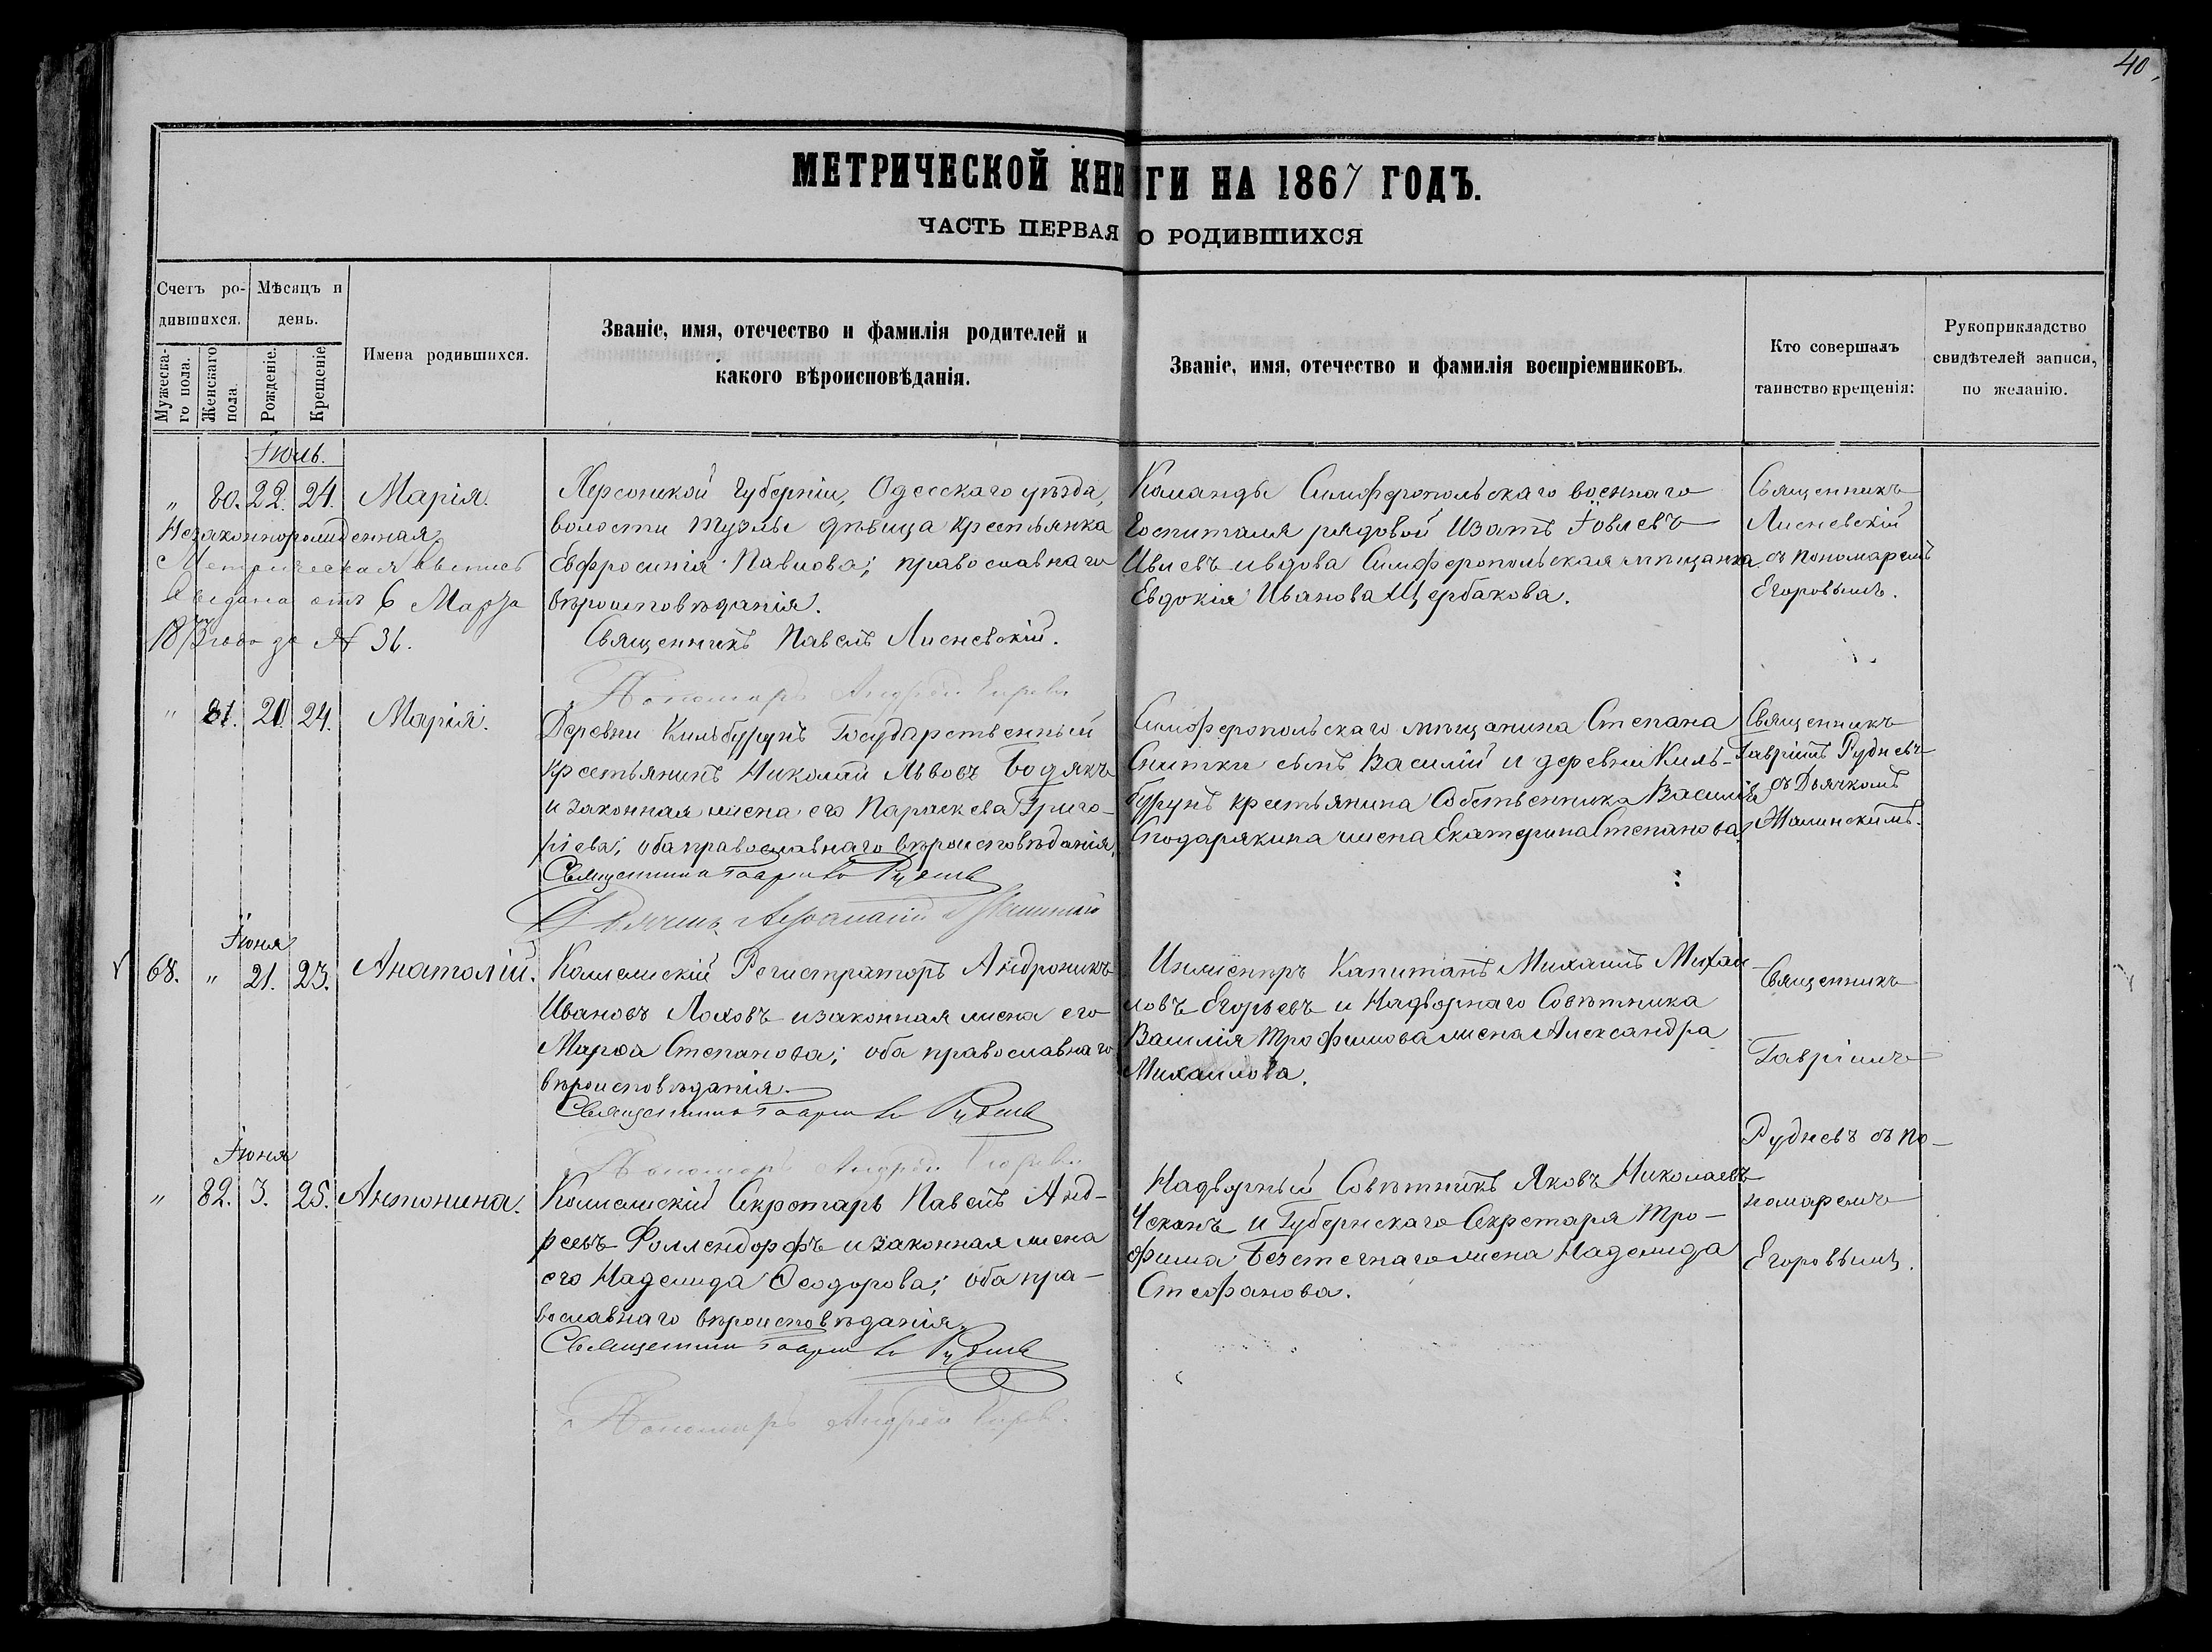 40.
МЕТРИЧЕСКОЙ КНИГИ НА 1867 ГОДЪ.
ЧАСТЬ ПЕРВАЯ О РОДИВШИХСЯ
Счетъ ро-
дившихся.
Мѣсяцъ и
день.
Мужеска-
го пола.
Женскаго
пола.
Рожденіе.
Крещеніе.
Имена родившихся.
Званіе, имя, отечество и фамилія родителей и
какого вѣроисповѣданія.
Званіе, имя, отечество и фамилія воспріемниковъ.
Кто совершалъ
таинство крещенія:
Рукоприкладство
свидѣтелей записи,
по желанію.
Іюль.
„ 80. 22. 24. Марія.
Незаконнорожденная
Метрическая выпись
выдана отъ 6 Марта
за № 31.
Херсонской Губерніи, Одесскаго уѣзда,
волости Тузлы дѣвица крестьянка
Евфросинія Павлова; православнаго
вѣроисповѣданія.
Священникъ Павелъ Лисневскій.
Пономарь Андрей Егоровъ
Команды Симферопольскаго военнаго
Госпиталя рядовой
Ивлевъ и вдова Симферопольская мѣщанка
Евдокія Иванова Щербакова.
Священникъ
Лисневскій
съ пономаремъ
Егоровымъ.
„ 81. 21. 24. Марія.
Деревни Кильбурунъ Государственный
крестьянинъ Николай Львовъ Бодякъ
и законная жена его Параскева Григо-
рьева; оба православнаго вѣроисповѣданія.
Священникъ Гавріилъ Рудневъ
Дьячекъ Афанасій
Симферопольскаго мѣщанина Степана
Снитки сынъ Василій и деревни Киль-
бурунъ крестьянина Собственника Василія
Сподарякина жена Екатерина Степанова.
Священникъ
Гавріилъ Рудневъ
съ Дьячкомъ
Іюня
68. „ 21. 23. Анатолій.
Коллежскій Регистраторъ Андроникъ
Ивановъ Лоховъ и законная жена его
Марѳа Степанова; оба православнаго
вѣроисповѣданія.
Священникъ Гавріилъ Рудневъ
Пономарь Андрей Егоровъ
Инженеръ Капитанъ Михаилъ Михаи-
ловъ Егорьевъ и Надворнаго Совѣтника
Василія Трофимова жена Александра
Михаилова.
Священникъ
Гавріилъ
Рудневъ съ по-
номаремъ
Егоровымъ.
Іюня
„ 82. 3. 25. Антонина.
Коллежскій Секретарь Павелъ Анд-
реевъ Фоллендорфъ и законная жена
его Надежда Ѳеодорова; оба пра-
вославнаго вѣроисповѣданія.
Священникъ Гавріилъ Рудневъ
Пономарь Андрей Егоровъ.
Надворный Совѣтникъ Яковъ Николаевъ
Чеканъ и Губернскаго Секретаря Тро-
фима Безстечнаго жена Надежда
Стефанова.